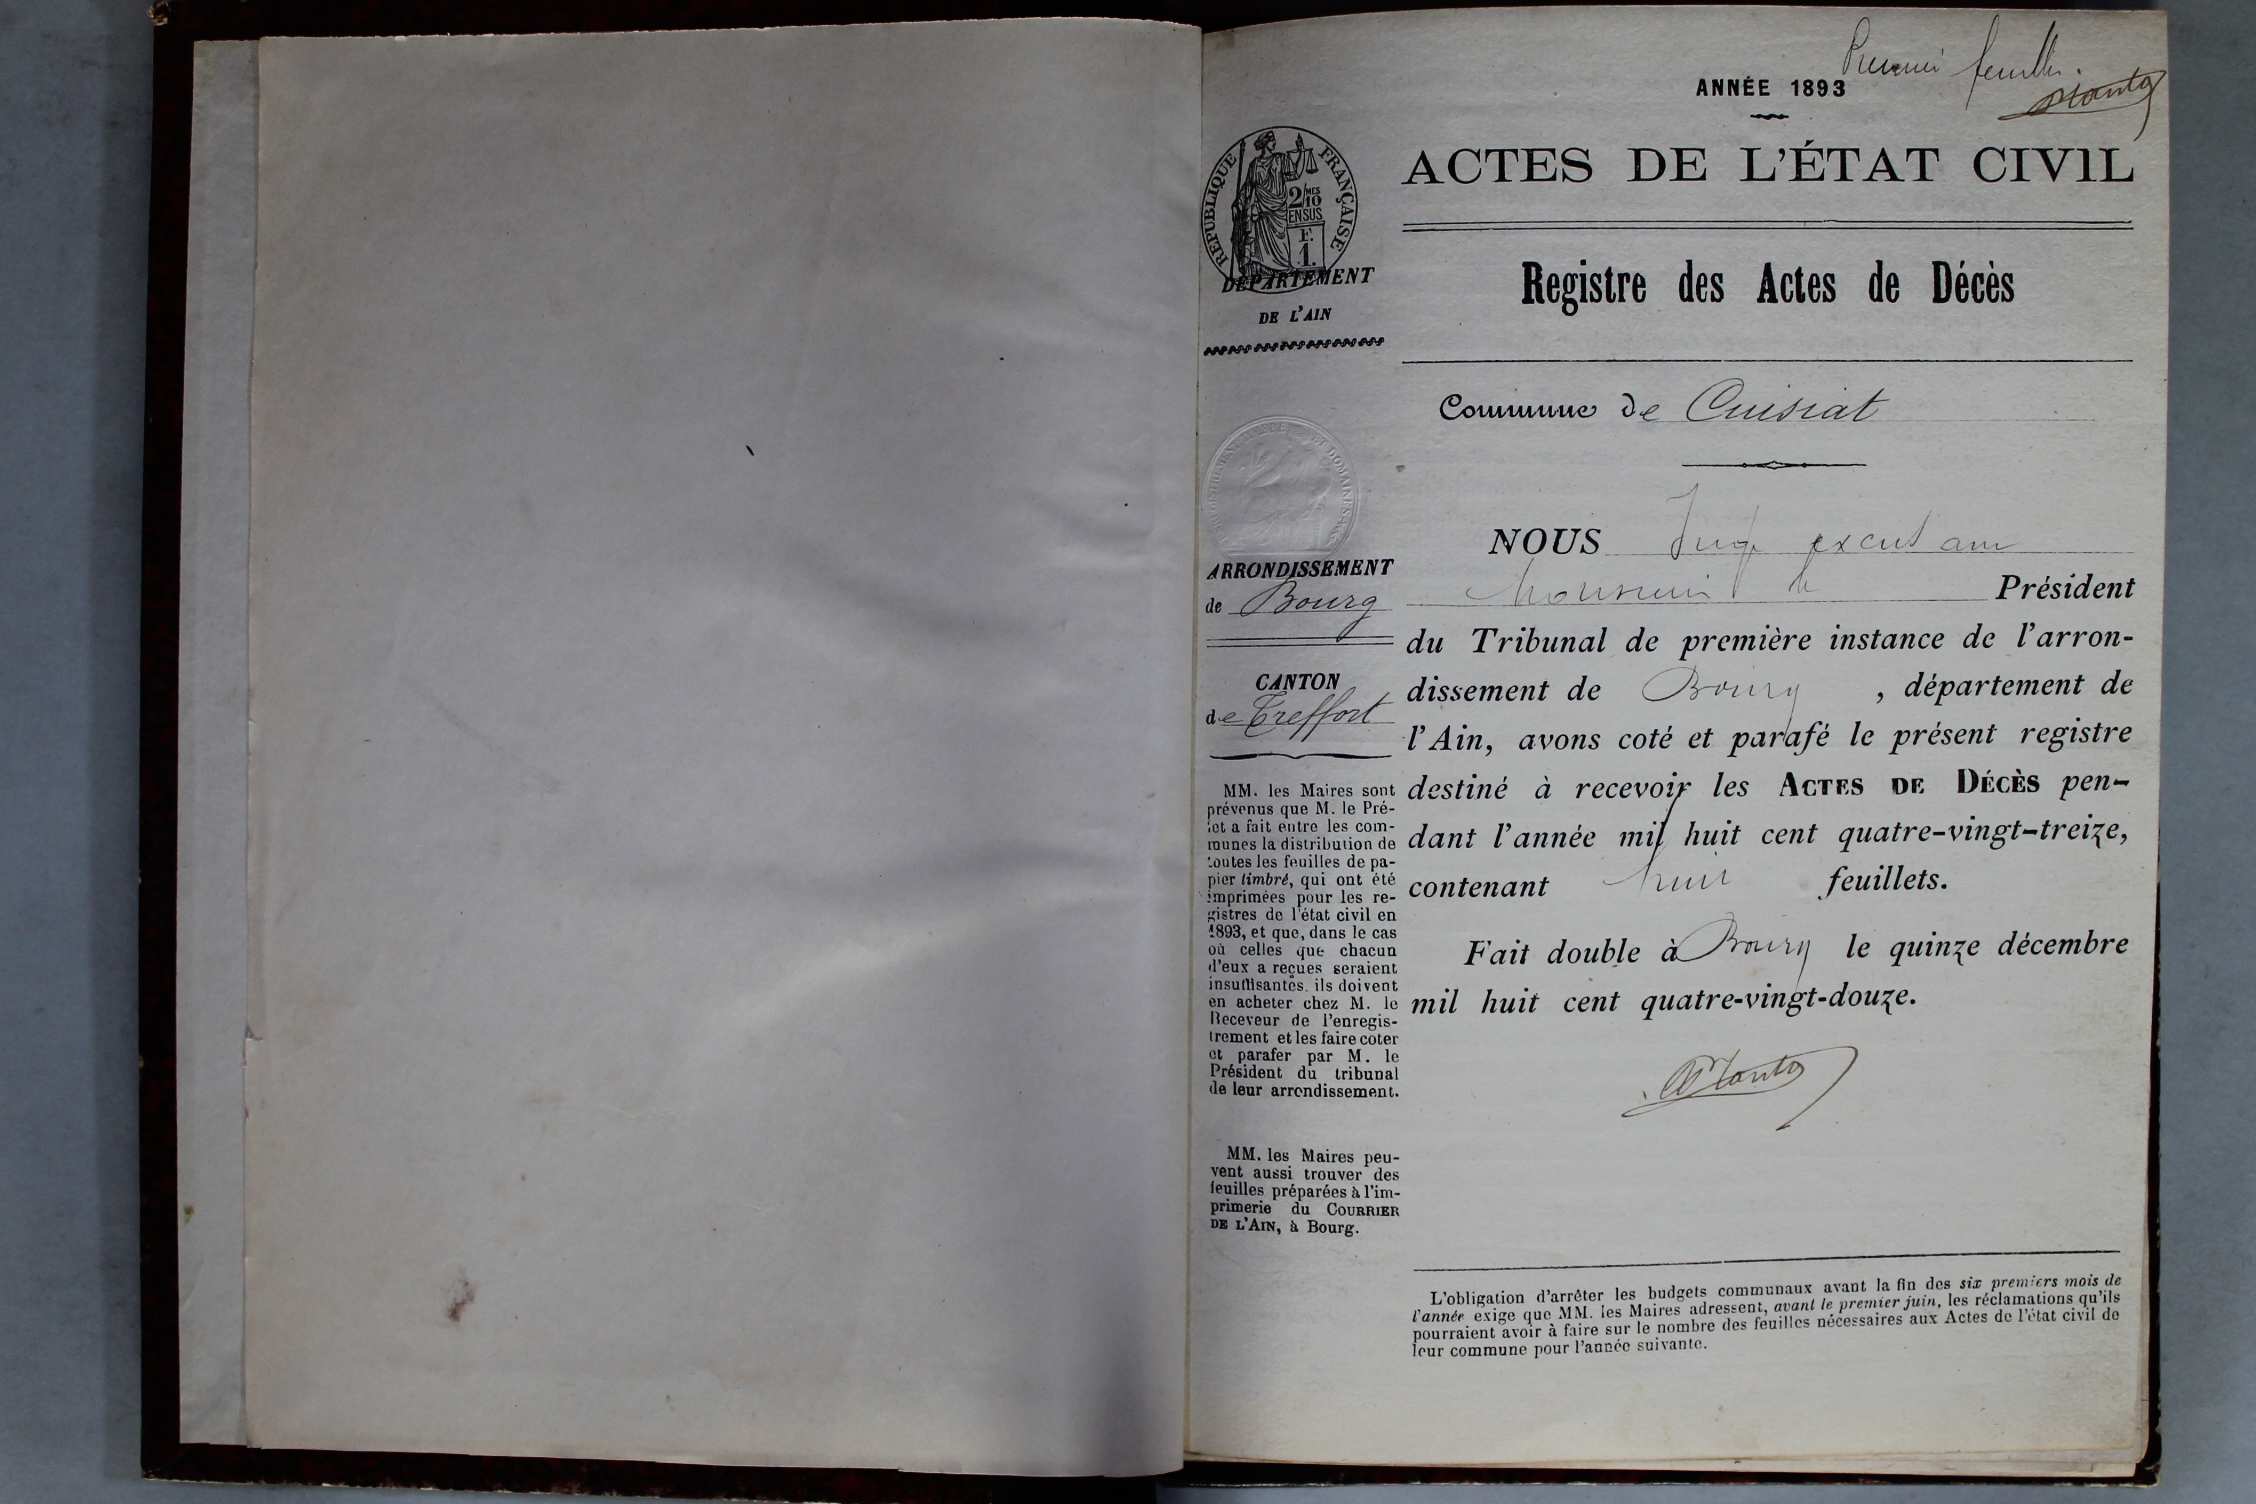 Premier feuillet.
ANNÉE 1893
ACTES DE L'ÉTAT CIVIL
RÉPUBLIQUE FRANÇAISE
2/10 MES
EN SUS
F.
1.
DÉPARTEMENT
DE L'AIN
Registre des Actes de Décès
Commune de Cuisiat
ARRONDISSEMENT
de Bourg
CANTON
de Treffort
MM. les Maires sont
prévenus que M. le Pré-
fet a fait entre les com-
munes la distribution de
toutes les feuilles de pa-
pier timbré, qui ont été
imprimées pour les re-
gistres de l'état civil en
1893, et que, dans le cas
où celles que chacun
d'eux a reçues seraient
insuffisantes, ils doivent
en acheter chez M. le
Receveur de l'enregis-
trement et les faire coter
et parafer par M. le
Président du tribunal
de leur arrondissement.
MM. les Maires peu-
vent aussi trouver des
feuilles préparées à l'im-
primerie du COURRIER
DE L'AIN, à Bourg.
NOUS Juge
Monsieur le Président
du Tribunal de première instance de l'arron-
dissement de Bourg, département de
l'Ain, avons coté et parafé le présent registre
destiné à recevoir les ACTES DE DÉCÈS pen-
dant l'année mil huit cent quatre-vingt-treize,
contenant huit feuillets.
Fait double à Bourg le quinze décembre
mil huit cent quatre-vingt-douze.
L'obligation d'arrêter les budgets communaux avant la fin des six premiers mois de
l'année exige que MM. les Maires adressent, avant le premier juin, les réclamations qu'ils
pourraient avoir à faire sur le nombre des feuilles nécessaires aux Actes de l'état civil de
leur commune pour l'année suivante.